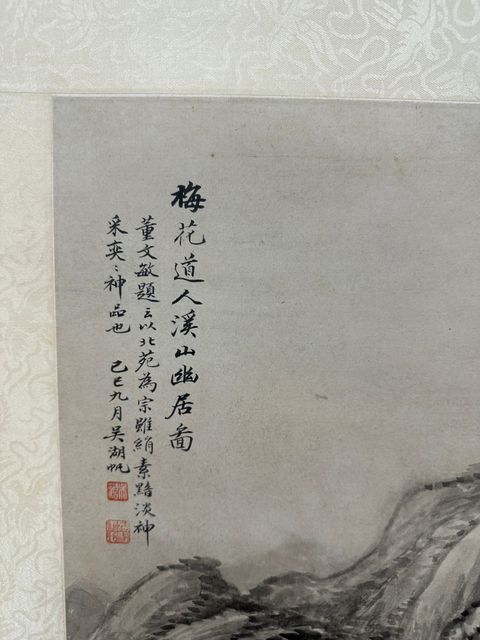 梅花道人溪山幽居啚
董文敏題云以北苑為宗雖絹素黯淡神
采奕〻神品也 己巳九月吴湖帆